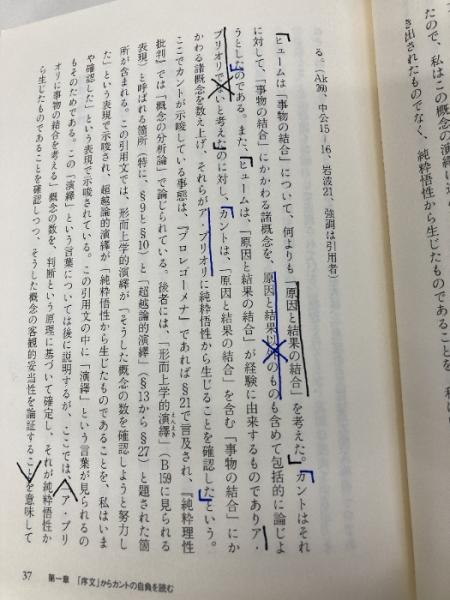 たので、私はこの概念の演繹に
き出されたものでなく、純粋悟性から生じたものであることを
る。（Ak 260, 中公15-16、岩波21、強調は引用者）
ヒュームは「事物の結合」について、何よりも「原因と結果の結合」を考えた。カントはそれ
に対して、「事物の結合」にかかわる諸概念を、原因と結果以外のものも含めて包括的に論じよ
うとしたのである。また、ヒュームは、「原因と結果の結合」が経験に由来するものでありア・
プリオリでないと考えたのに対し、カントは、「原因と結果の結合」を含む「事物の結合」にか
かわる諸概念を数え上げ、それらがア・プリオリに純粋悟性から生じることを確認したという。
ここでカントが示唆している事態は、『プロレゴーメナ』であれば§21で言及され、『純粋理性
批判』では「概念の分析論」で論じられている。後者には、「形而上学的演繹」（B 159に見られる
表現）と呼ばれる箇所（特に、§9と§10）と「超越論的演繹」（§13から§27）と題された箇
所が含まれる。この引用文では、形而上学的演繹が「そうした概念の数を確認しようと努力し
た」という表現で示唆され、超越論的演繹が「純粋悟性から生じたものであることを、私はいま
や確認した」という表現で示唆されている。この引用文の中に「演繹」という言葉が見られるの
もそのためである。この「演繹」という言葉については後に説明するが、ここでは、「ア・プリ
オリに事物の結合を考える」概念の数を、判断という原理に基づいて確定し、それが純粋悟性か
ら生じたものであることを確認しつつ、そうした概念の客観的妥当性を論証することを意味して
えんえき
37 第一章 「序文」からカントの自負を読む